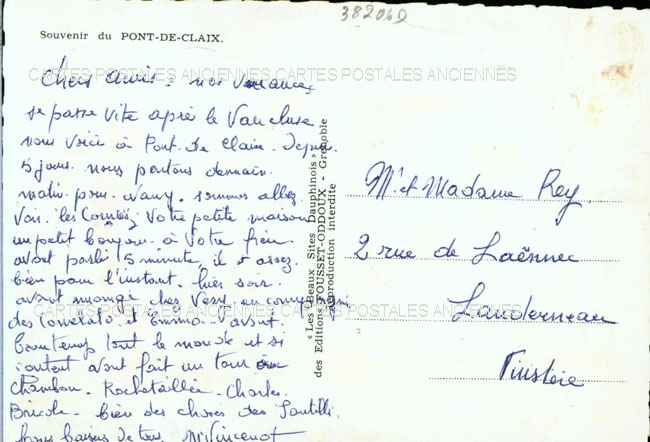 38206D
Souvenir du PONT-DE-CLAIX.
CARTES POSTALES ANCIENNES CARTES POSTALES ANCIENNES
Chers amis. nos vacances
se passe vite après le Vaucluse
nous voici à Pont. De Claix. Depuis
5 jours. nous partons demain.
matin pour. Nancy. sommes allez
Voir. les Votre petite maison
un petit bonjour. à Votre frère.
avont parlé 5 minute, il assez.
bien pour l'instant. hier soir.
avont mangé chez en
des et Emma. avont.
beautemps tout le monde et si
contant avont fait un tour
Chambon. Rochetaillée. Charles
Bricole. bien des choses des
bons baisers de tous. Vincenot
« Les Beaux Sites Dauphinois »
des Editions FOUSSET-ODDOUX - Grenoble
Reproduction interdite
Mr et Madame Rey.
2 rue de Laënnec
Landerneau
Finistère
CARTES POSTALES ANCIENNES CARTES POSTALES ANCIENNES